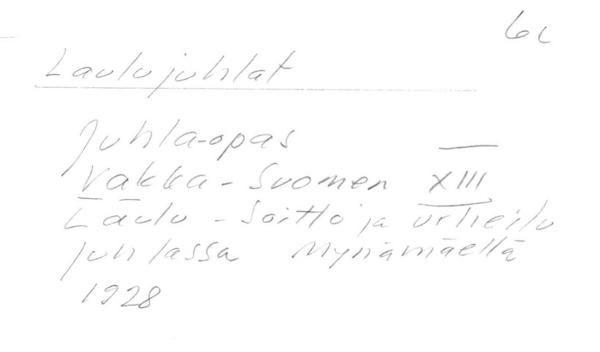 6c
Laulujuhlat
Juhla-opas
Vakka-Suomen XIII
Laulu-Soitto ja urheilu
juhlassa Mynämäellä
1928